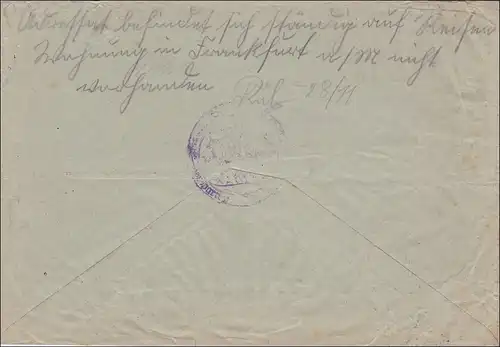 Adressat befindet sich ständig auf Reisen
Wohnung in Frankfurt a/M nicht
vorhanden 28/11